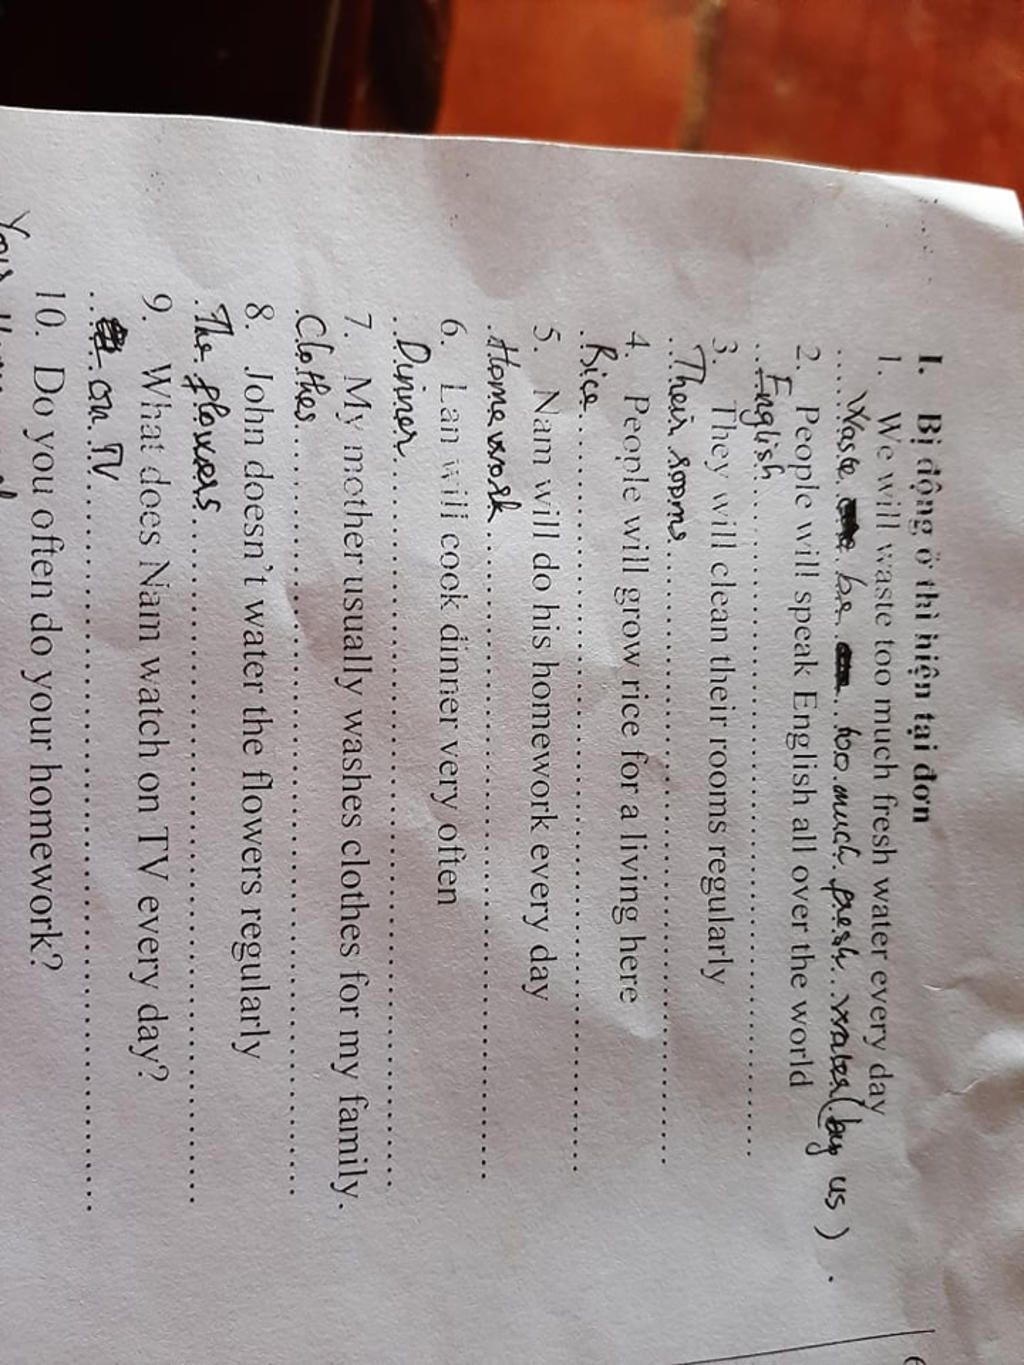 I. Bị động ở thì hiện tại đơn
1. We will waste too much fresh water every day
Waste be too much fresh water (by us).
2. People will speak English all over the world
English
3. They will clean their rooms regularly
Their rooms
4. People will grow rice for a living here
Rice
5. Nam will do his homework every day
Home work
6. Lan will cook dinner very often
Dinner
7. My mother usually washes clothes for my family.
Clothes
8. John doesn't water the flowers regularly
The flowers
9. What does Nam watch on TV every day?
on TV
10. Do you often do your homework?